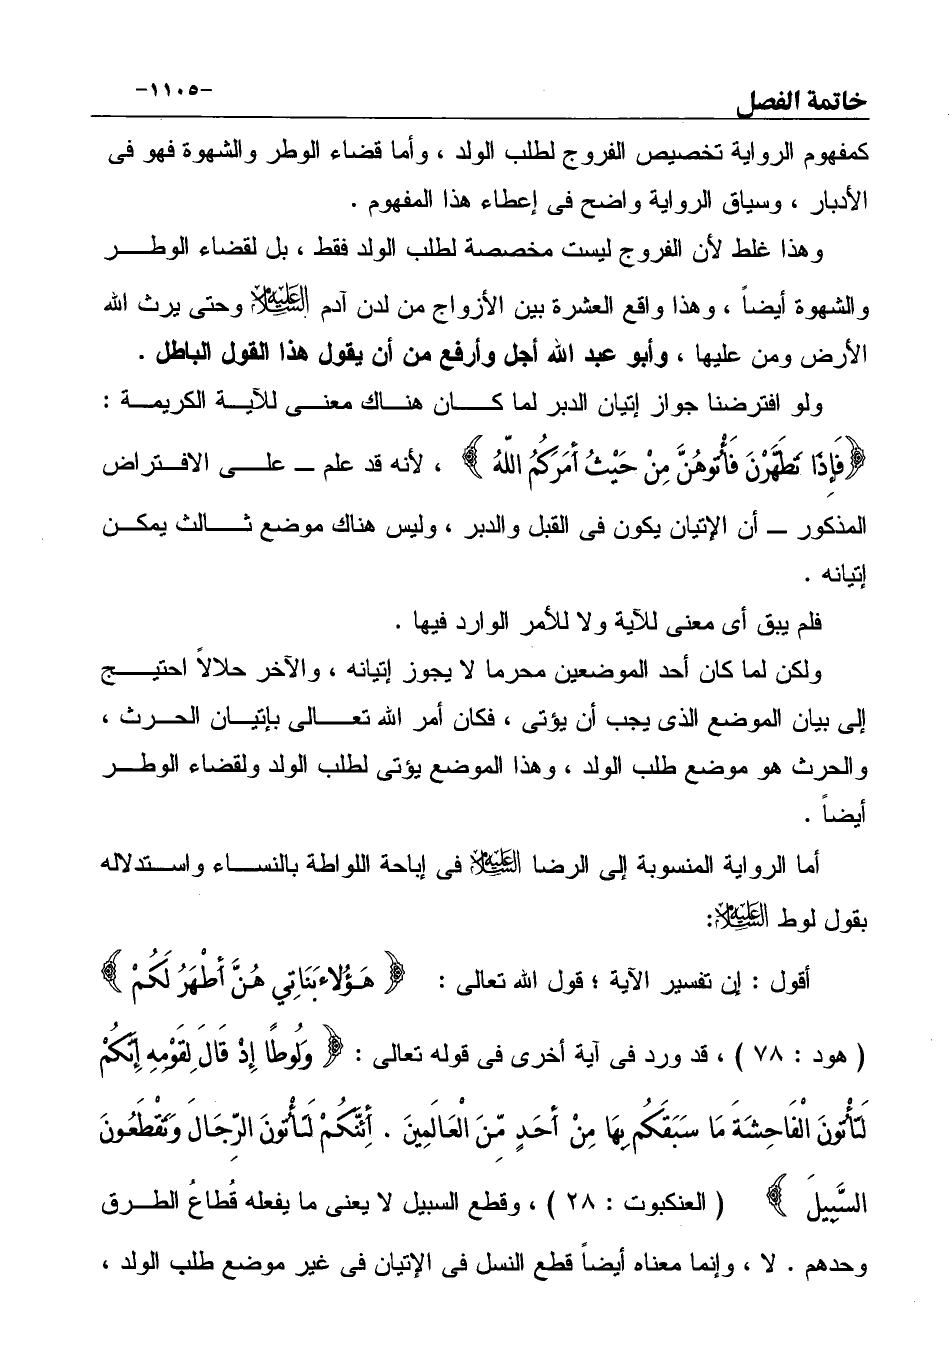 خاتمة الفصل -١١٠٥-
كمفهوم الرواية تخصيص الفروج لطلب الولد ، وأما قضاء الوطر والشهوة فهو فى
الأدبار ، وسياق الرواية واضح فى إعطاء هذا المفهوم .
وهذا غلط لأن الفروج ليست مخصصة لطلب الولد فقط ، بل لقضاء الوطر
والشهوة أيضاً ، وهذا واقع العشرة بين الأزواج من لدن آدم عليه السلام وحتى يرث الله
الأرض ومن عليها ، وأبو عبد الله أجل وأرفع من أن يقول هذا القول الباطل .
ولو افترضنا جواز إتيان الدبر لما كان هناك معنى للآية الكريمة :
﴿ فَإِذَا تَطَهَّرْنَ فَأْتُوهُنَّ مِنْ حَيْثُ أَمَرَكُمُ اللَّهُ ﴾ ، لأنه قد علم – على الافتراض
المذكور – أن الإتيان يكون فى القبل والدبر ، وليس هناك موضع ثالث يمكن
إتيانه .
فلم يبق أى معنى للآية ولا للأمر الوارد فيها .
ولكن لما كان أحد الموضعين محرما لا يجوز إتيانه ، والآخر حلالاً احتيج
إلى بيان الموضع الذى يجب أن يؤتى ، فكان أمر الله تعالى بإتيان الحرث ،
والحرث هو موضع طلب الولد ، وهذا الموضع يؤتى لطلب الولد ولقضاء الوطر
أيضاً .
أما الرواية المنسوبة إلى الرضا عليه السلام فى إباحة اللواطة بالنساء واستدلاله
بقول لوط عليه السلام:
أقول : إن تفسير الآية ؛ قول الله تعالى : ﴿ هَؤُلاءِ بَنَاتِي هُنَّ أَطْهَرُ لَكُمْ ﴾
( هود : ٧٨ ) ، قد ورد فى آية أخرى فى قوله تعالى : ﴿ وَلُوطًا إِذْ قَالَ لِقَوْمِهِ إِنَّكُمْ
لَتَأْتُونَ الْفَاحِشَةَ مَا سَبَقَكُم بِهَا مِنْ أَحَدٍ مِّنَ الْعَالَمِينَ . أَئِنَّكُمْ لَتَأْتُونَ الرِّجَالَ وَتَقْطَعُونَ
السَّبِيلَ ﴾ ( العنكبوت : ٢٨ ) ، وقطع السبيل لا يعنى ما يفعله قُطاعُ الطرق
وحدهم . لا ، وإنما معناه أيضاً قطع النسل فى الإتيان فى غير موضع طلب الولد ،